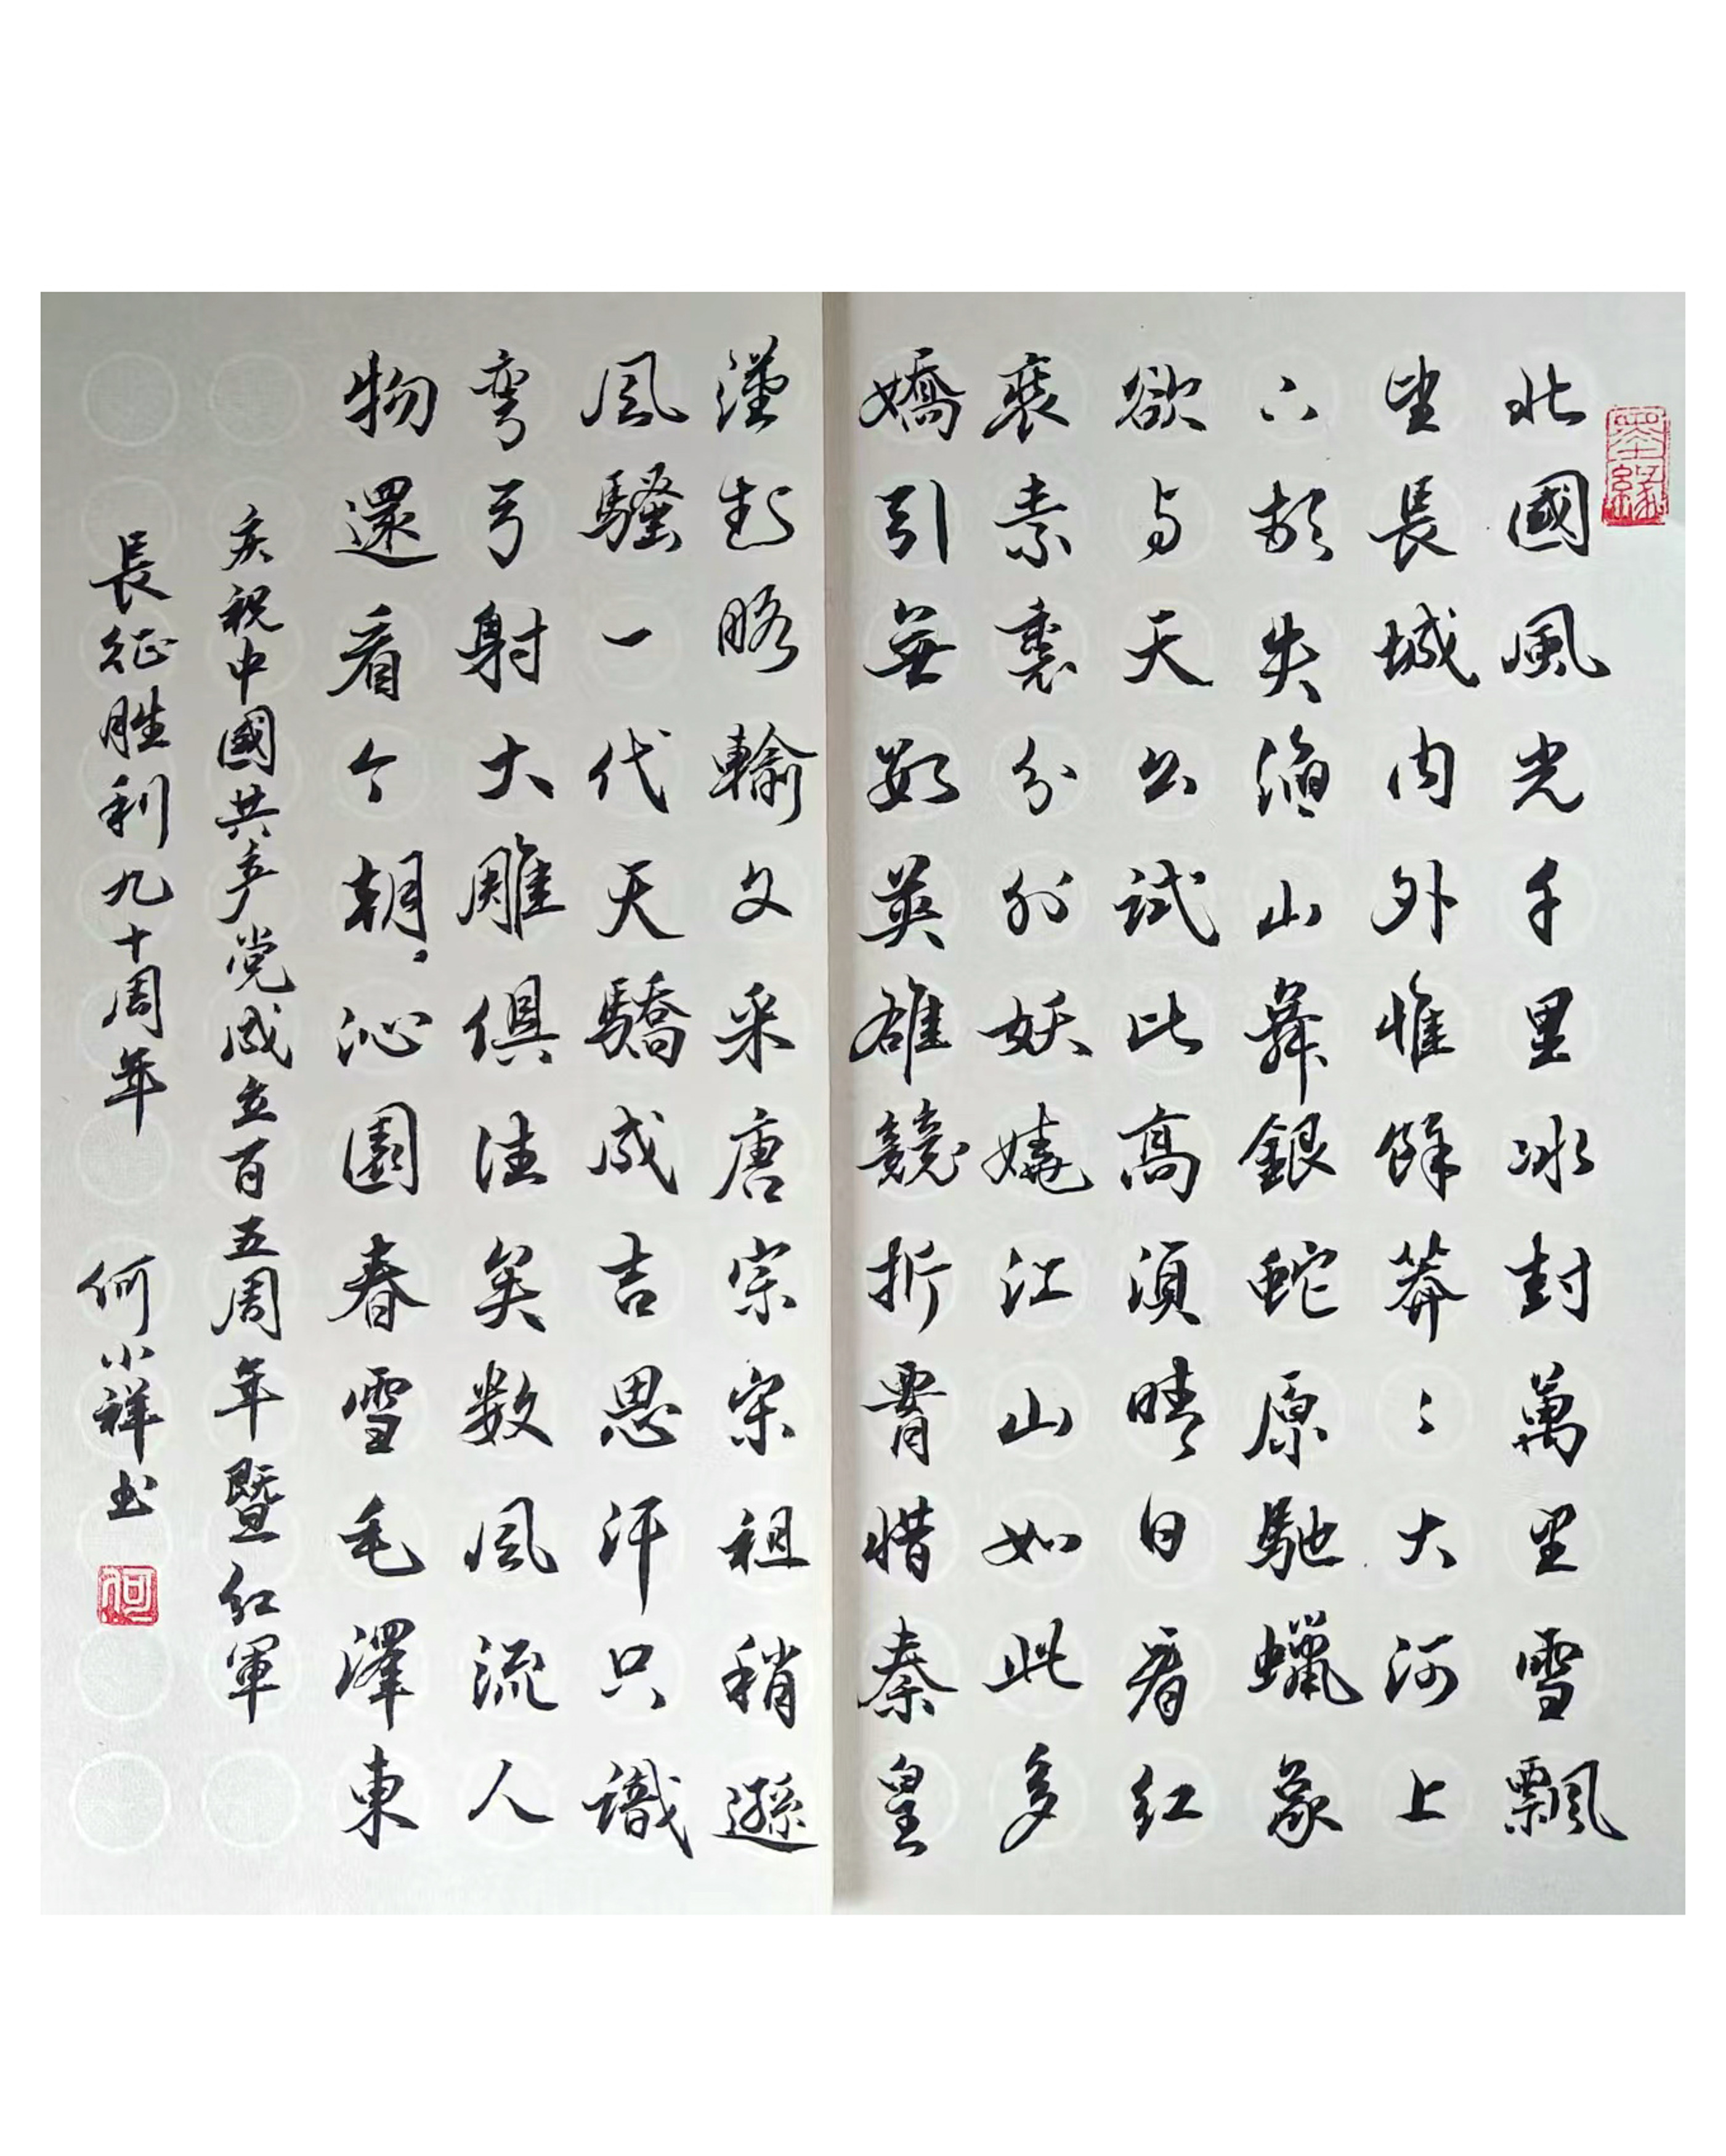 墨緣
北國風光千里冰封萬里雪飄
望長城内外惟餘莽〻大河上
下頓失滔山舞銀蛇原馳蠟象
欲与天公試比高須晴日看红
裝素裹分外妖嬈江山如此多
嬌引無數英雄競折腰惜秦皇
漢武略輸文采唐宗宋祖稍遜
風騷一代天驕成吉思汗只識
弯弓射大雕俱往矣数風流人
物還看今朝、沁園春雪毛澤東
庆祝中國共产党成立百五周年暨红軍
長征胜利九十周年 何小祥书
何